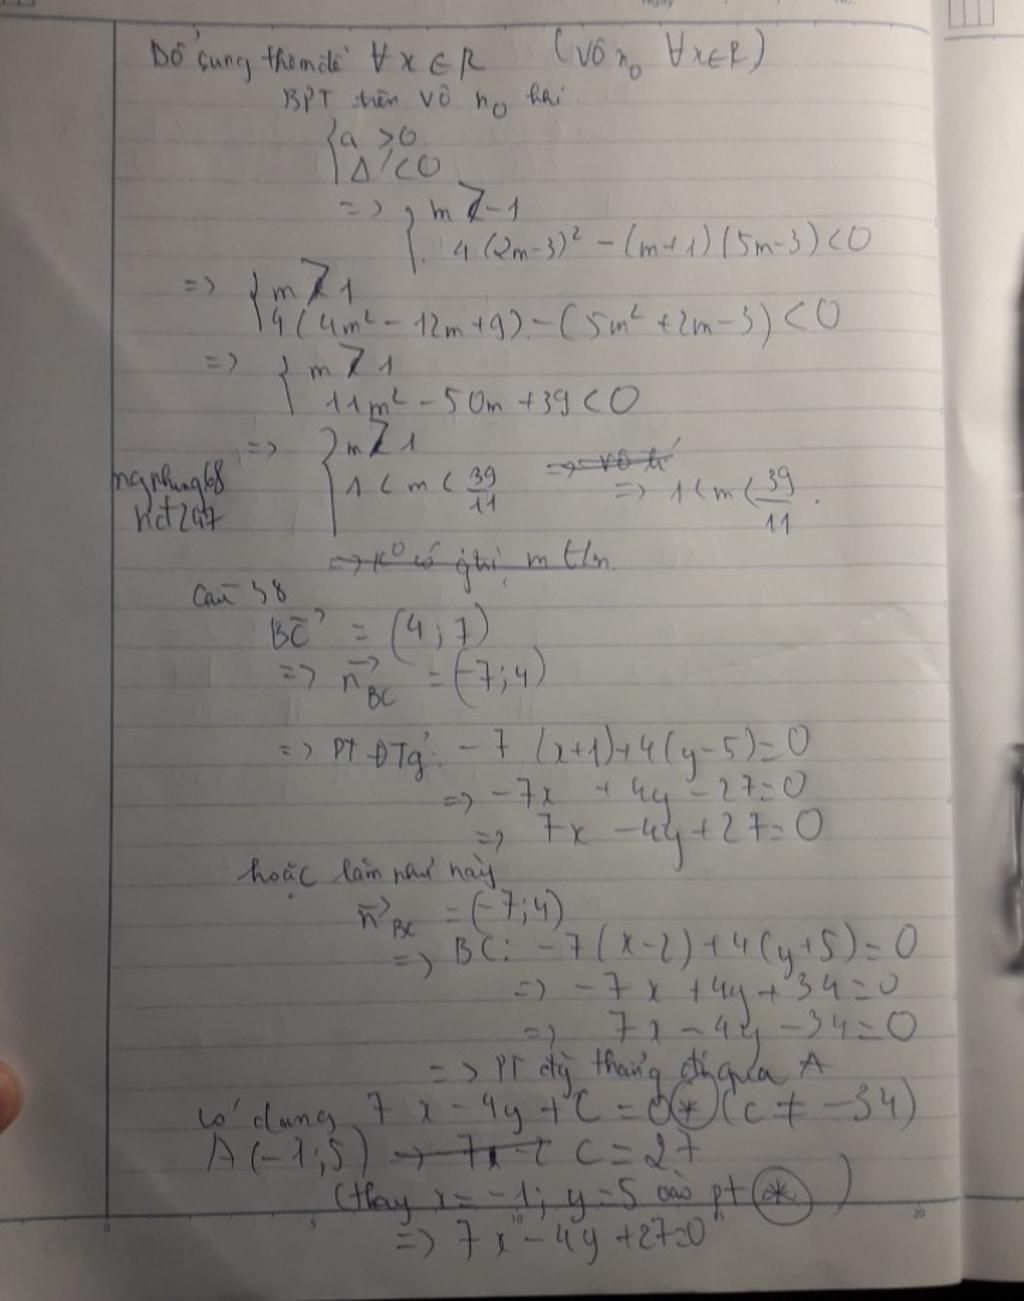 Bổ sung thêm đề ∀x∈R (vô n₀ ∀x∈R)
BPT trên vô n₀ khi
{a > 0
Δ' < 0
=> { m > -1
4(2m-3)² - (m+1)(5m-3) < 0
=> { m > 1
4(4m² - 12m + 9) - (5m² + 2m - 3) < 0
=> { m > 1
11m² - 50m + 39 < 0
=> { m > 1
1 < m < 39/11 => 1 < m < 39/11.
ngphung68
hct247
=> k⁰ có gtrị m t/m.
Câu 38
BC→ = (4; 7)
=> n→BC = (-7; 4)
=> PT ĐTg: -7(x+1) + 4(y-5) = 0
=> -7x + 4y - 27 = 0
=> 7x - 4y + 27 = 0
hoặc làm như này
n→BC = (-7; 4)
=> BC: -7(x-2) + 4(y+5) = 0
=> -7x + 4y + 34 = 0
=> 7x - 4y - 34 = 0
=> PT đg thẳng đi qua A
có dạng 7x - 4y + C = 0 (*) (C ≠ -34)
A(-1; 5) C = 27
(thay x = -1; y = 5 vào pt (*))
=> 7x - 4y + 27 = 0